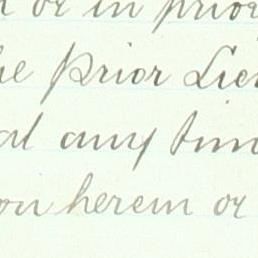 or in prior
prior Lien
any time
herein or